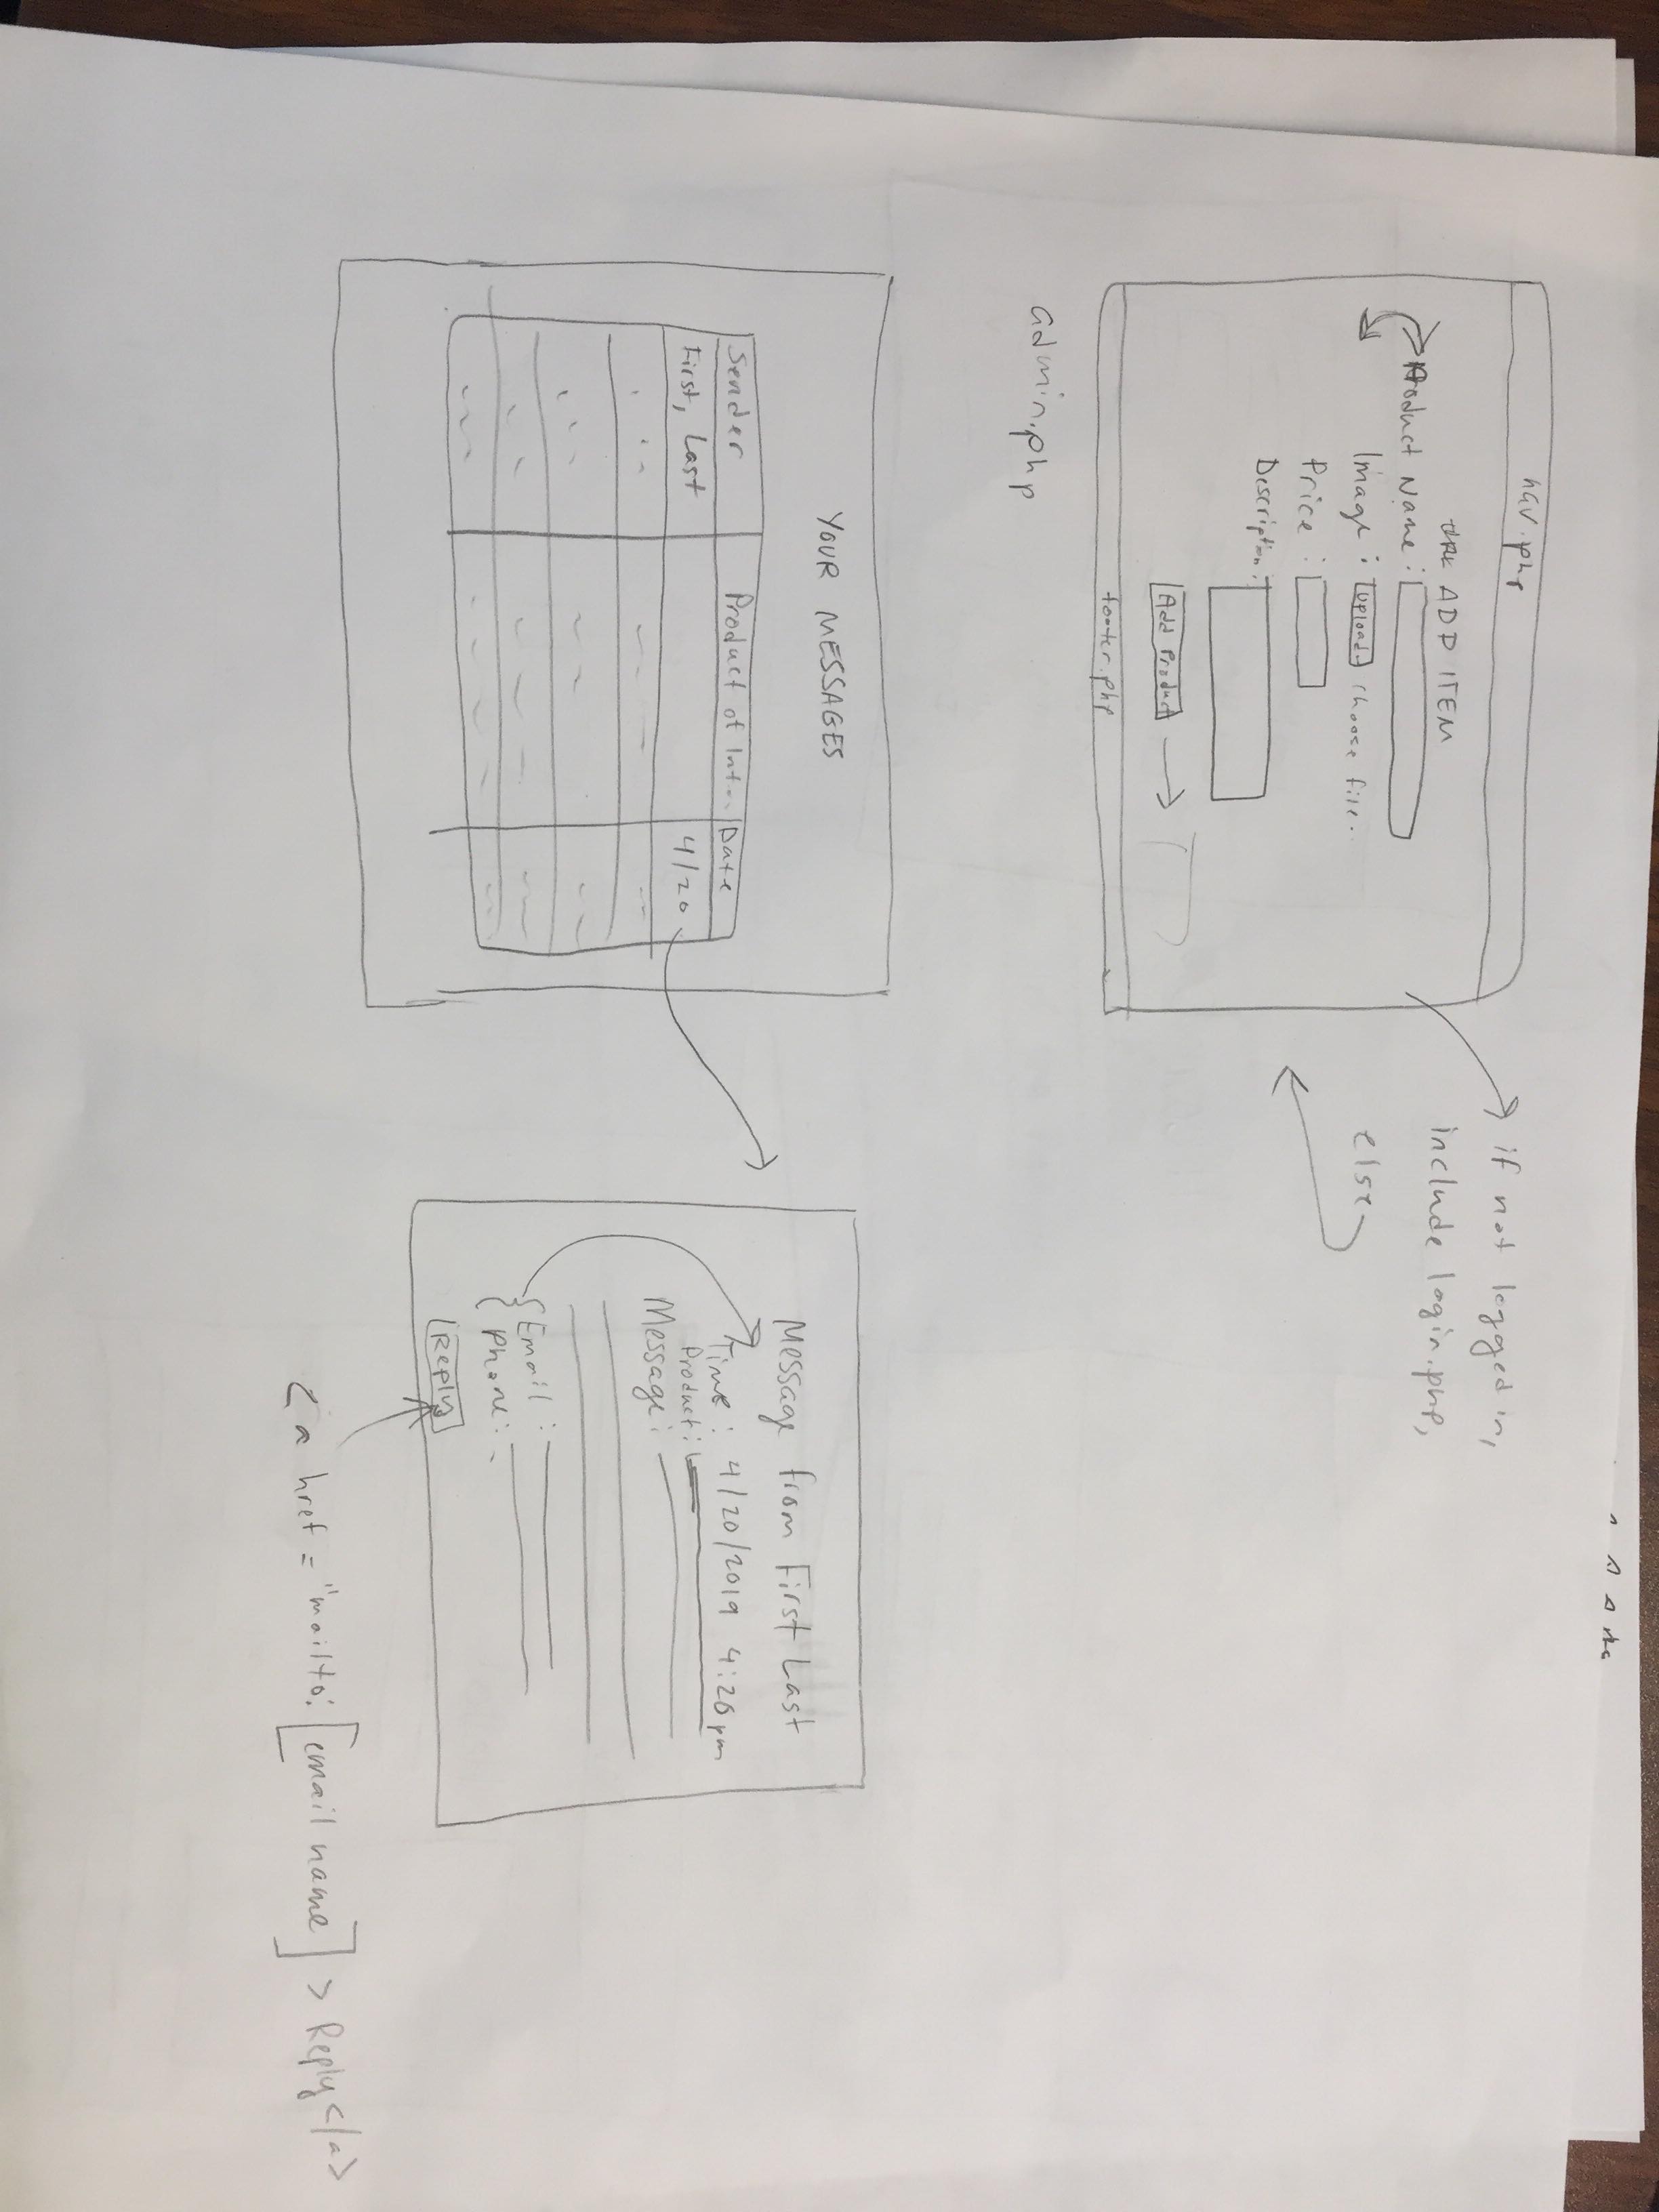 nav.php
ADD ITEM
Product Name:
Image: Upload choose file..
Price:
Description:
Add Product
footer.php
admin.php
if not logged in,
include login.php,
else
YOUR MESSAGES
Sender Product of Int... Date
First, Last 4/20
Message from First Last
Time: 4/20/2019 4:20pm
Product:
Message:
Email:
Phone:
Reply
<a href = "mailto: [email name] > Reply</a>